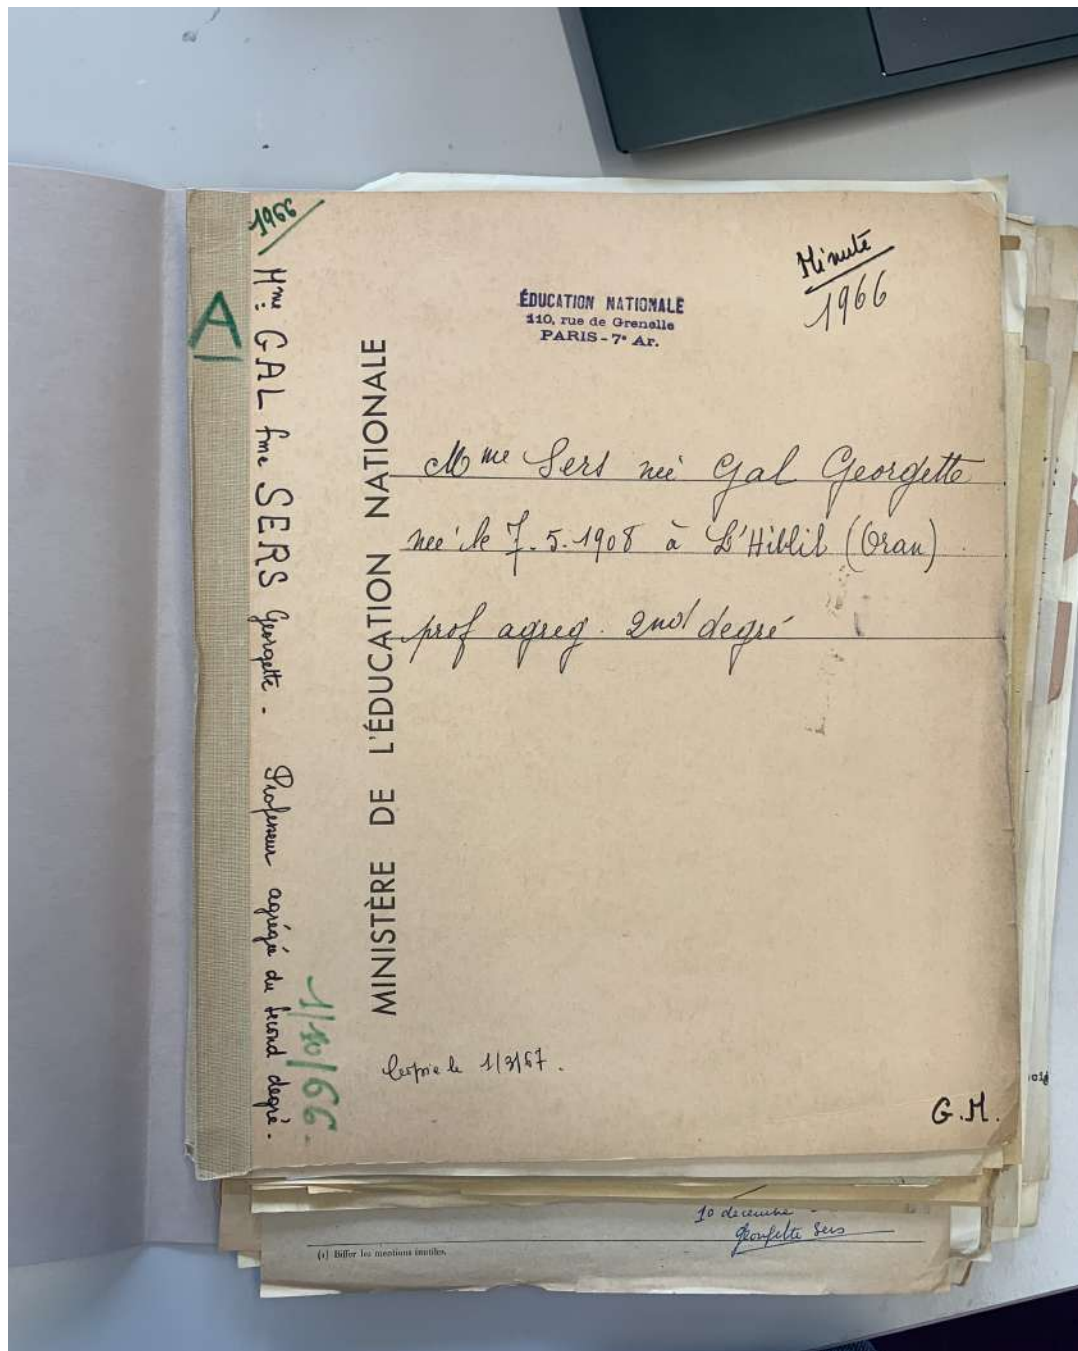 1966
A
Mme GAL fme SERS Georgette - Professeur agrégée du second degré.
1/10/66
MINISTÈRE DE L'ÉDUCATION NATIONALE
ÉDUCATION NATIONALE
110, rue de Grenelle
PARIS - 7e Ar.
Minute
1966
Mme Sers née Gal Georgette
née le 7.5.1908 à L'Hiblil (Oran)
prof agreg. 2nd degré
Copie le 1/3/67.
G.M.
10 decembre
Georgette Sers
(1) Biffer les mentions inutiles.